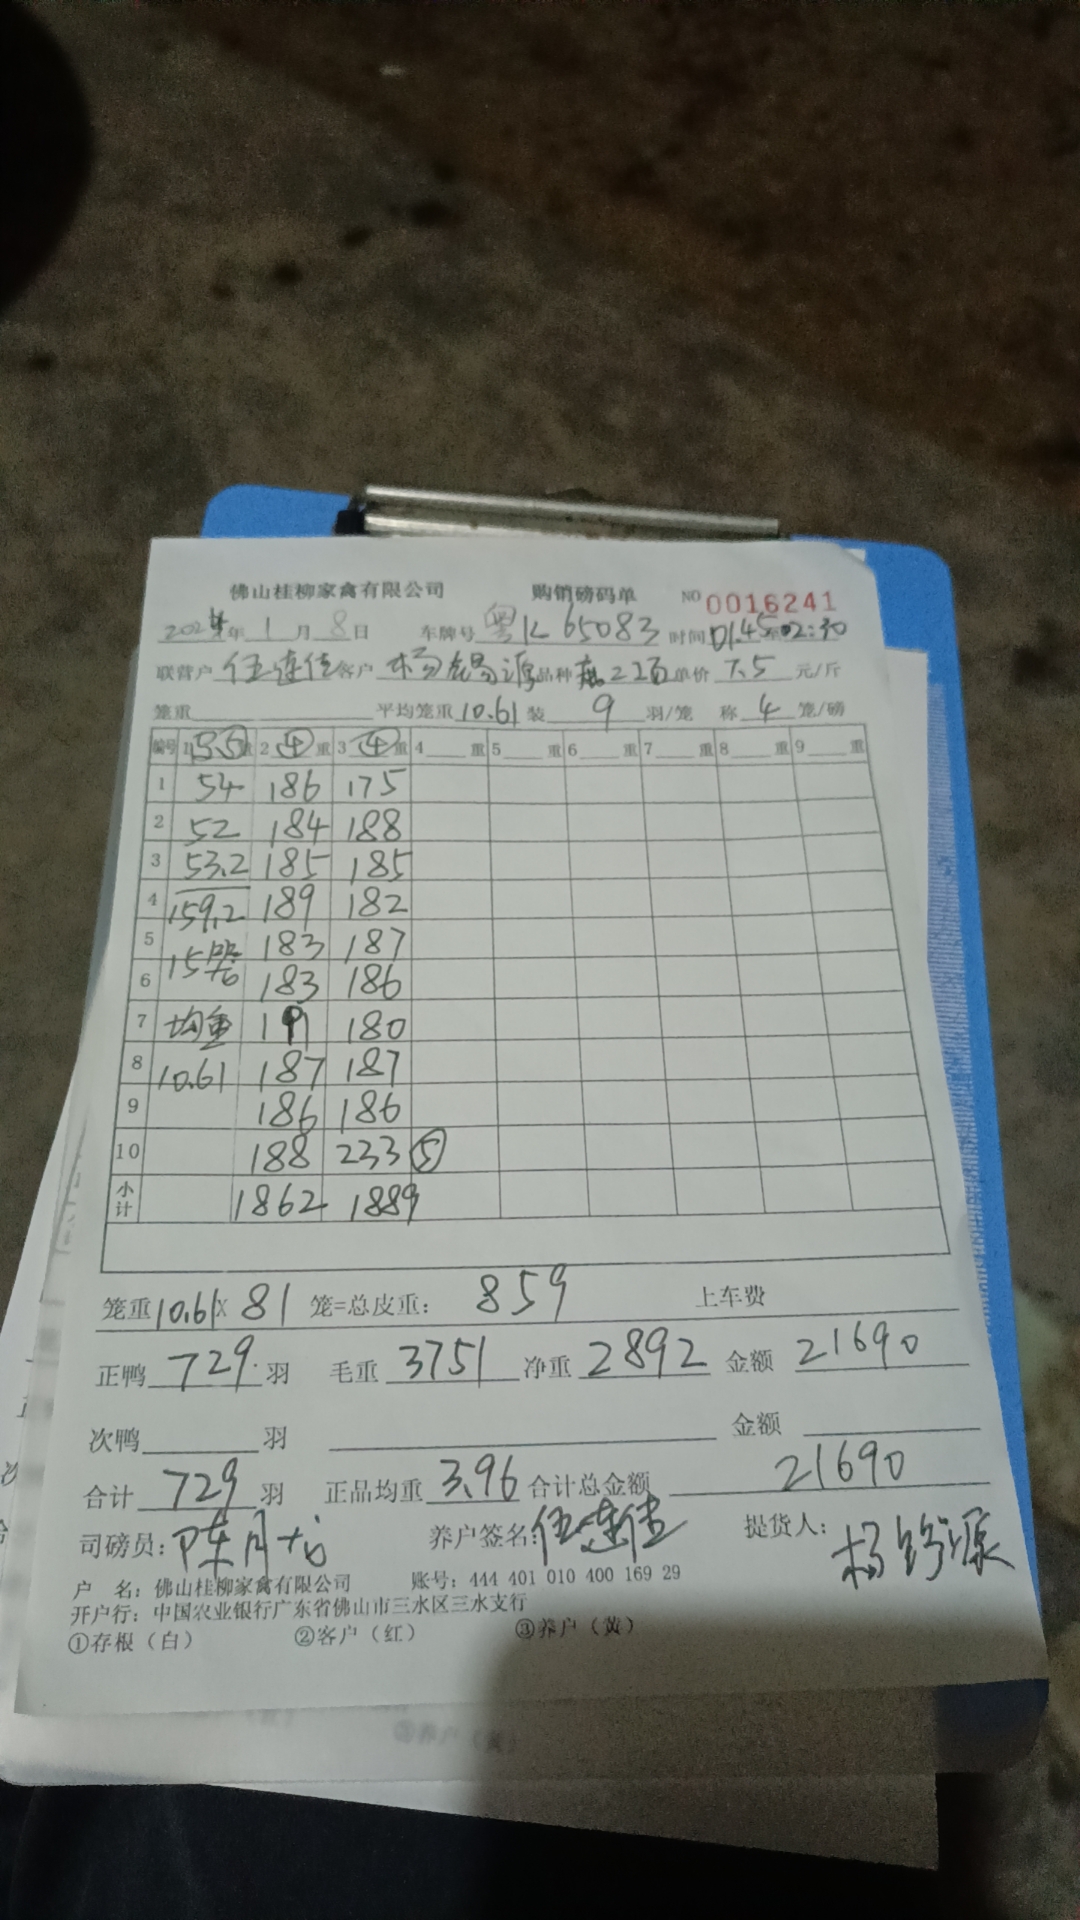 佛山桂柳家禽有限公司 购销磅码单 NO 0016241
年 1 月 8 日 车牌号 粤K65083 时间 01:45至02:30
联营户 伍连佳 客户 杨 源 品种 单价 7.5 元/斤
笼重 平均笼重 10.61 装 9 羽/笼 称 4 笼/磅
编号 1 (5.5) 重 2 (4) 重 3 (4) 重 4 重 5 重 6 重 7 重 8 重 9 重
1 54 186 175
2 52 184 188
3 53.2 185 185
4 159.2 189 182
5 15笼 183 187
6 183 186
7 均重 191 180
8 10.61 187 187
9 186 186
10 188 233 ⑤
小计 1862 1889
笼重 10.61 X 81 笼=总皮重: 859 上车费
正鸭 729 羽 毛重 3751 净重 2892 金额 21690
次鸭 羽 金额
合计 729 羽 正品均重 3.96 合计总金额 21690
司磅员: 陈月 养户签名: 伍连佳 提货人: 杨 源
户 名: 佛山桂柳家禽有限公司 账号: 444 401 010 400 169 29
开户行: 中国农业银行广东省佛山市三水区三水支行
①存根(白) ②客户(红) ③养户(黄)